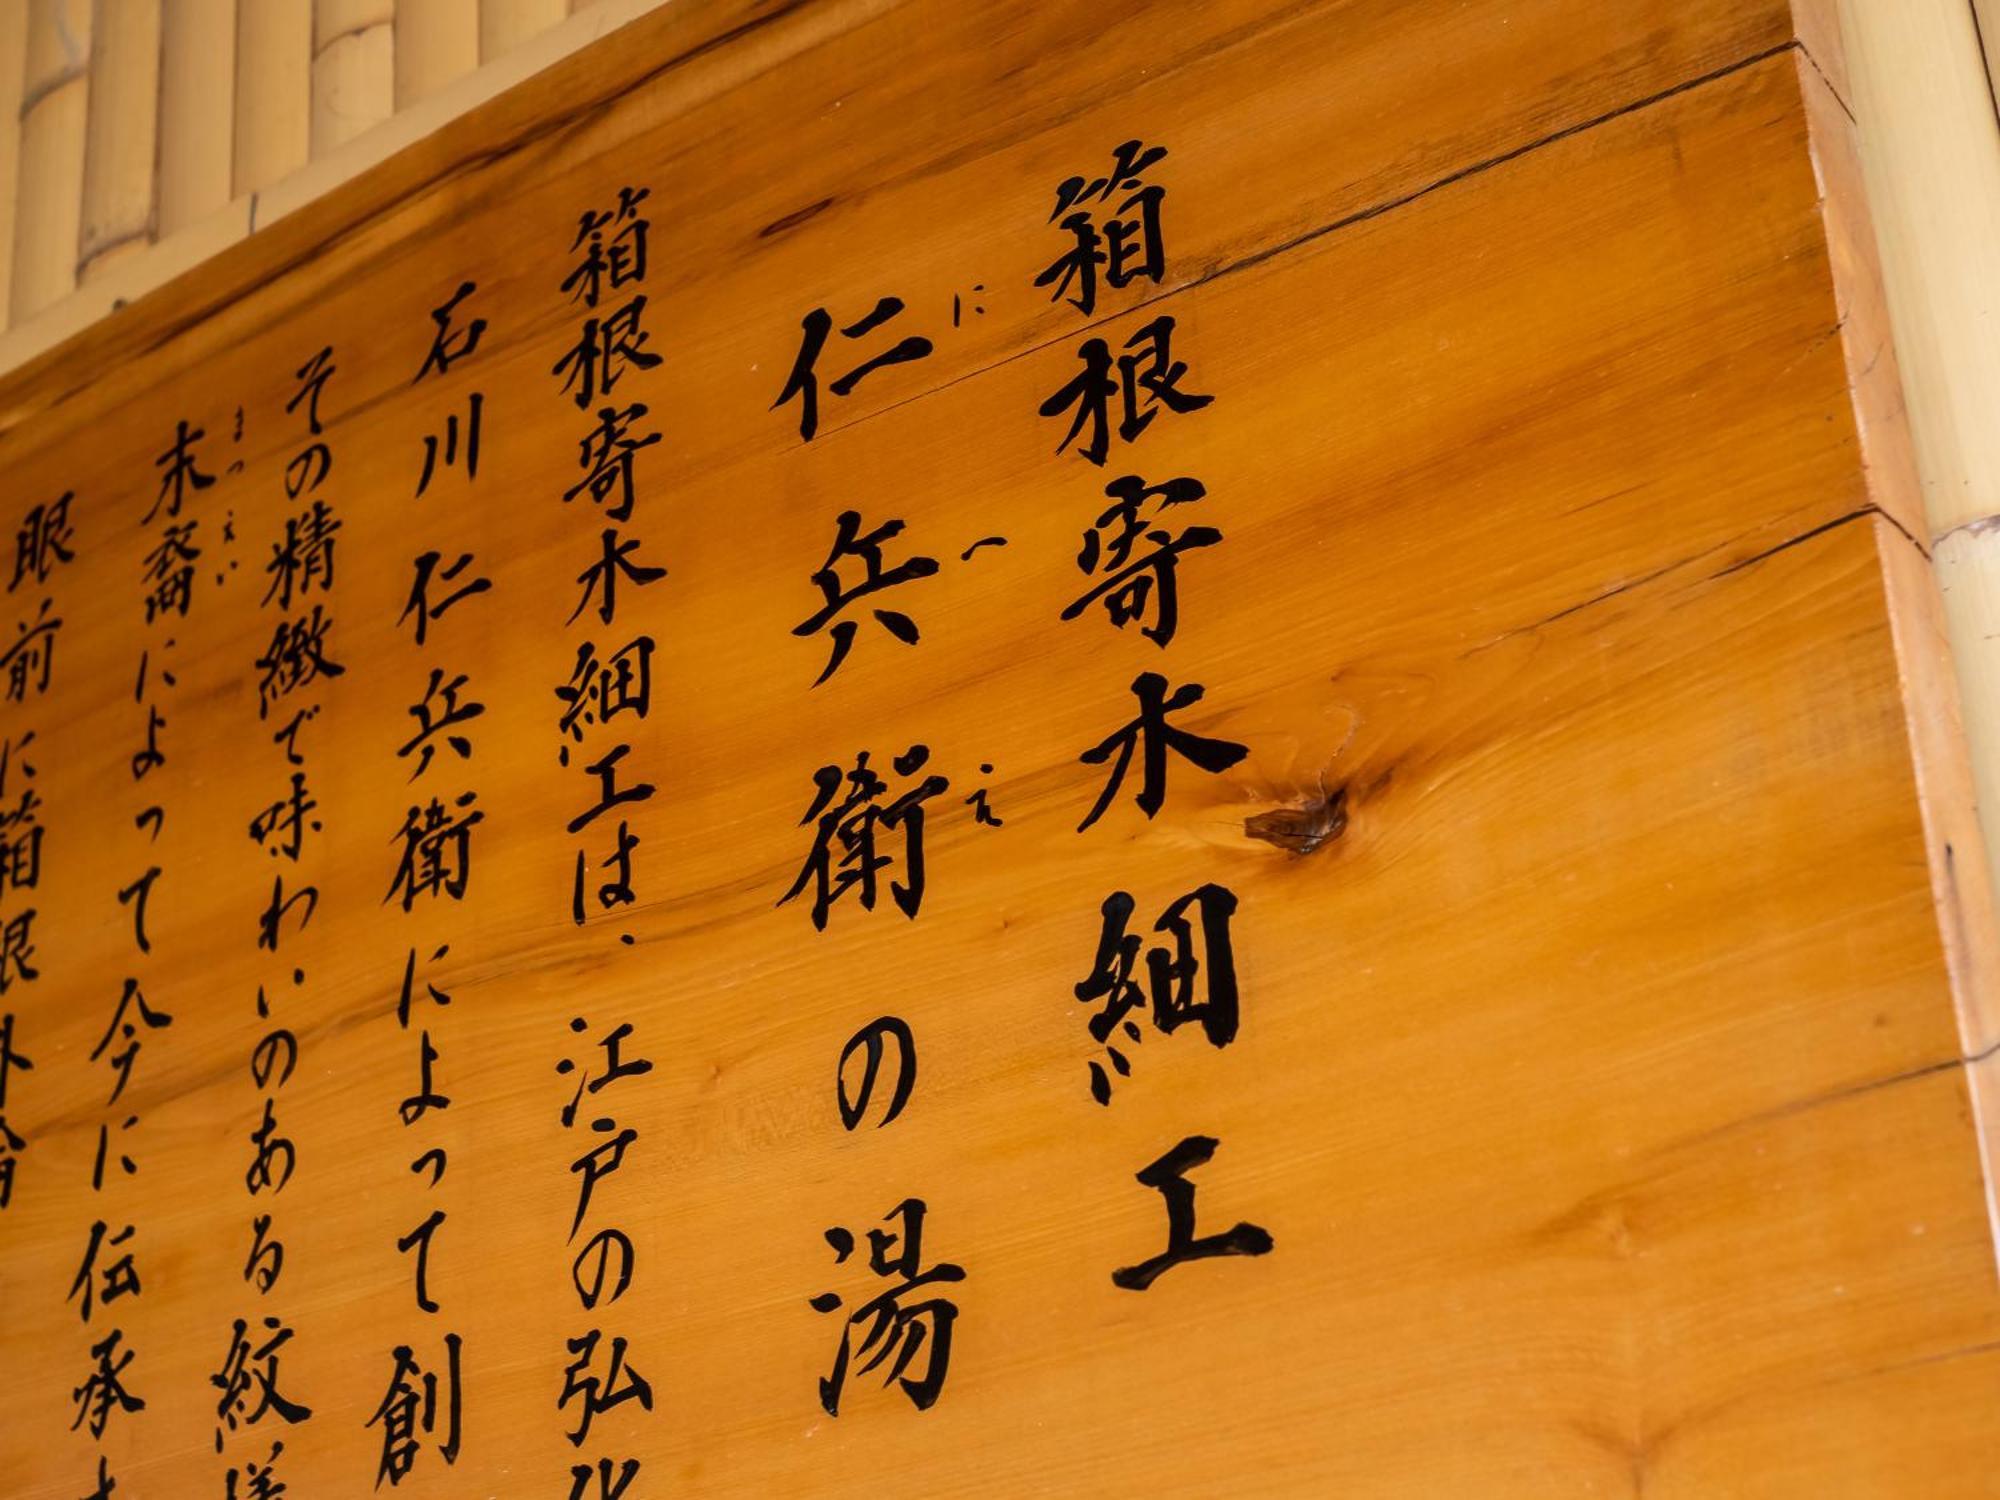 箱根寄木細工
仁兵衛の湯
に へ え
箱根寄木細工は、江戸の弘化
石川仁兵衛によって創
その精緻で味わいのある紋様
末裔によって今に伝承
まつ えい
眼前に箱根外輪